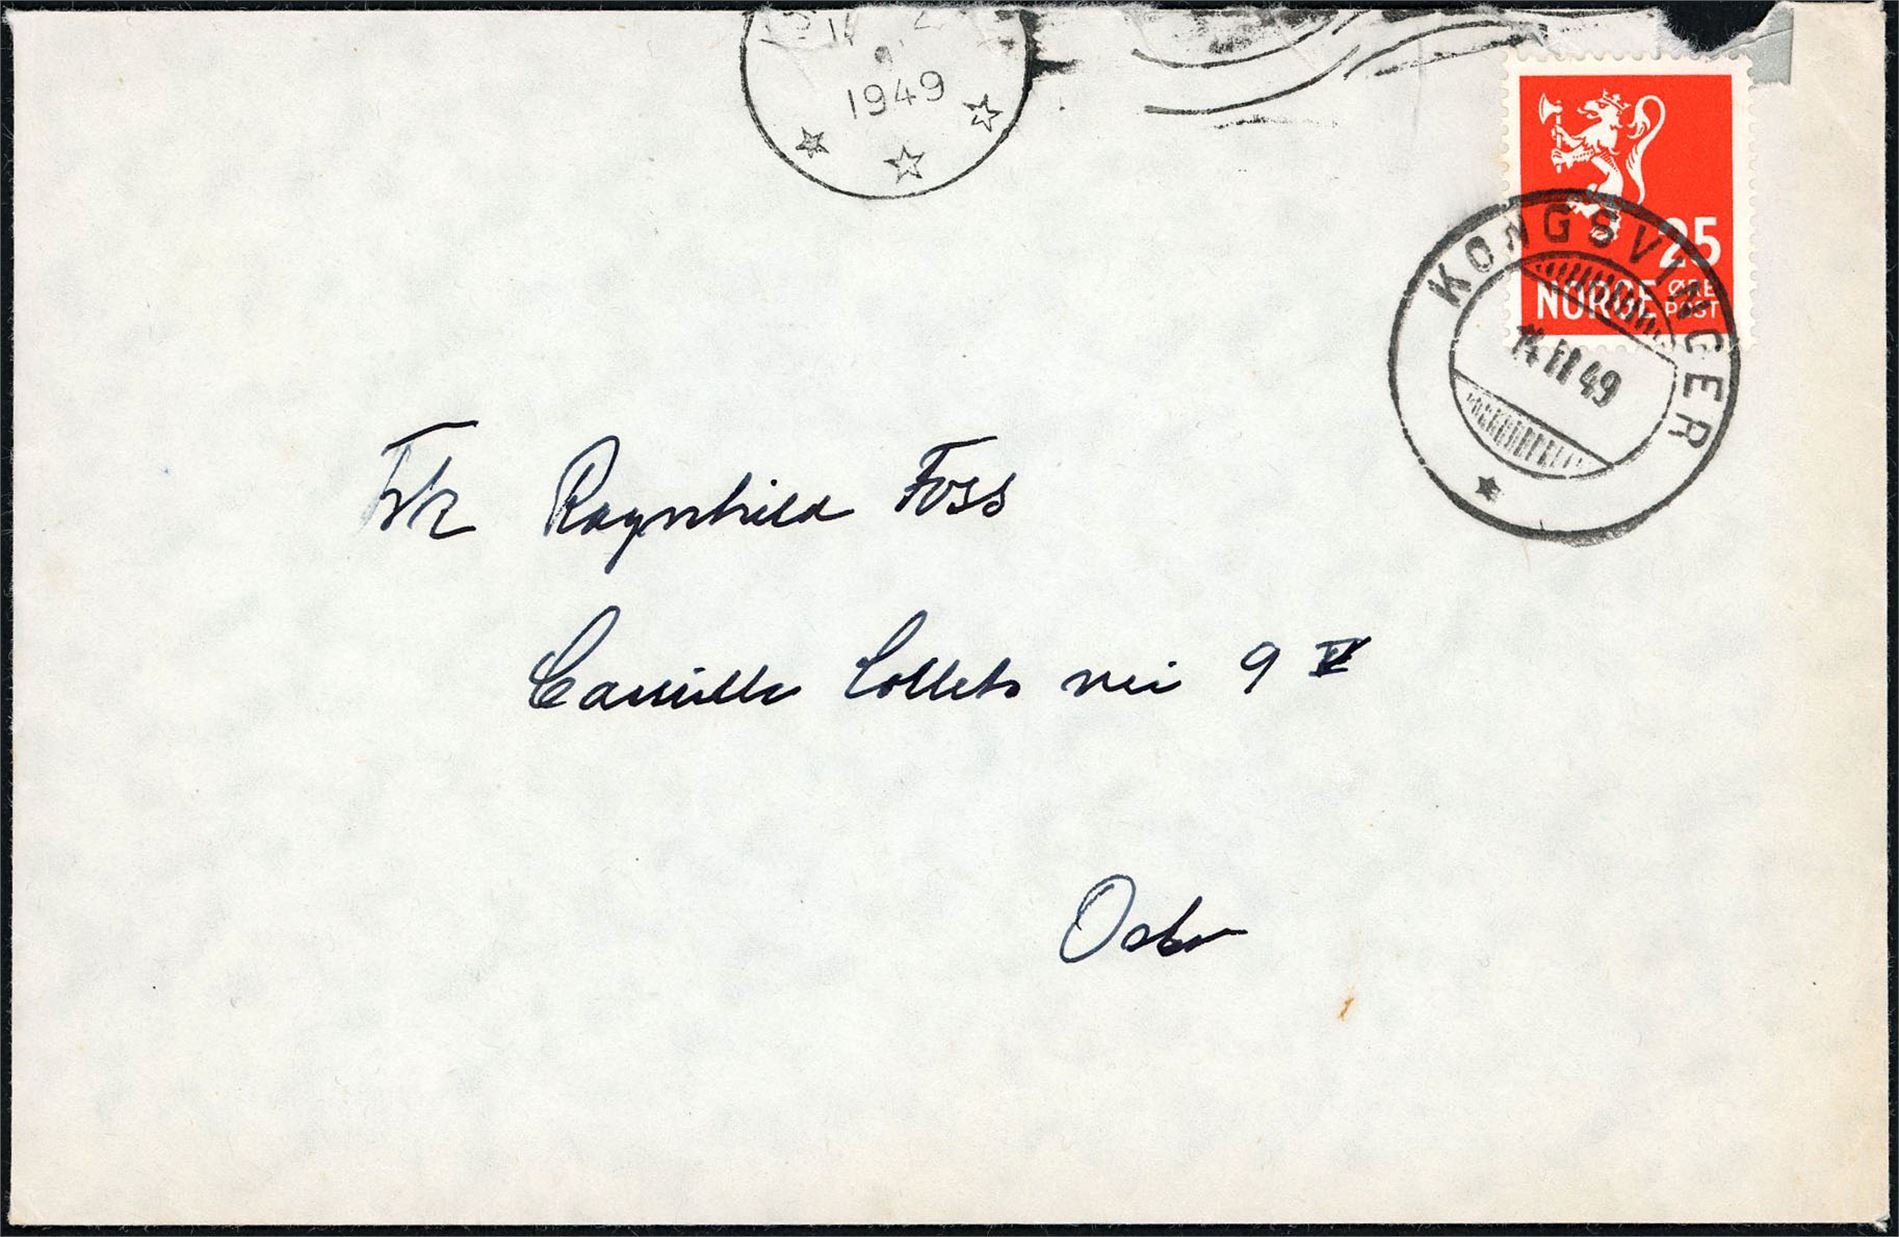 1949
25
NORGE ØRE
POST
KONGSVINGER
14 II 49
Frk Ragnhild Foss
Camilla Colletts vei 9 V
Oslo